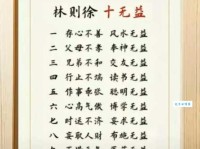 林则徐 十无益
一、存心不善 风水无益
二、父母不孝 奉神无益
三、兄弟不和 交友无益
四、行止不端 读书无益
五、作事乖张 聪明无益
六、心高气傲 博学无益
七、时运不济 妄求无益
八、妄取人财 布施无益